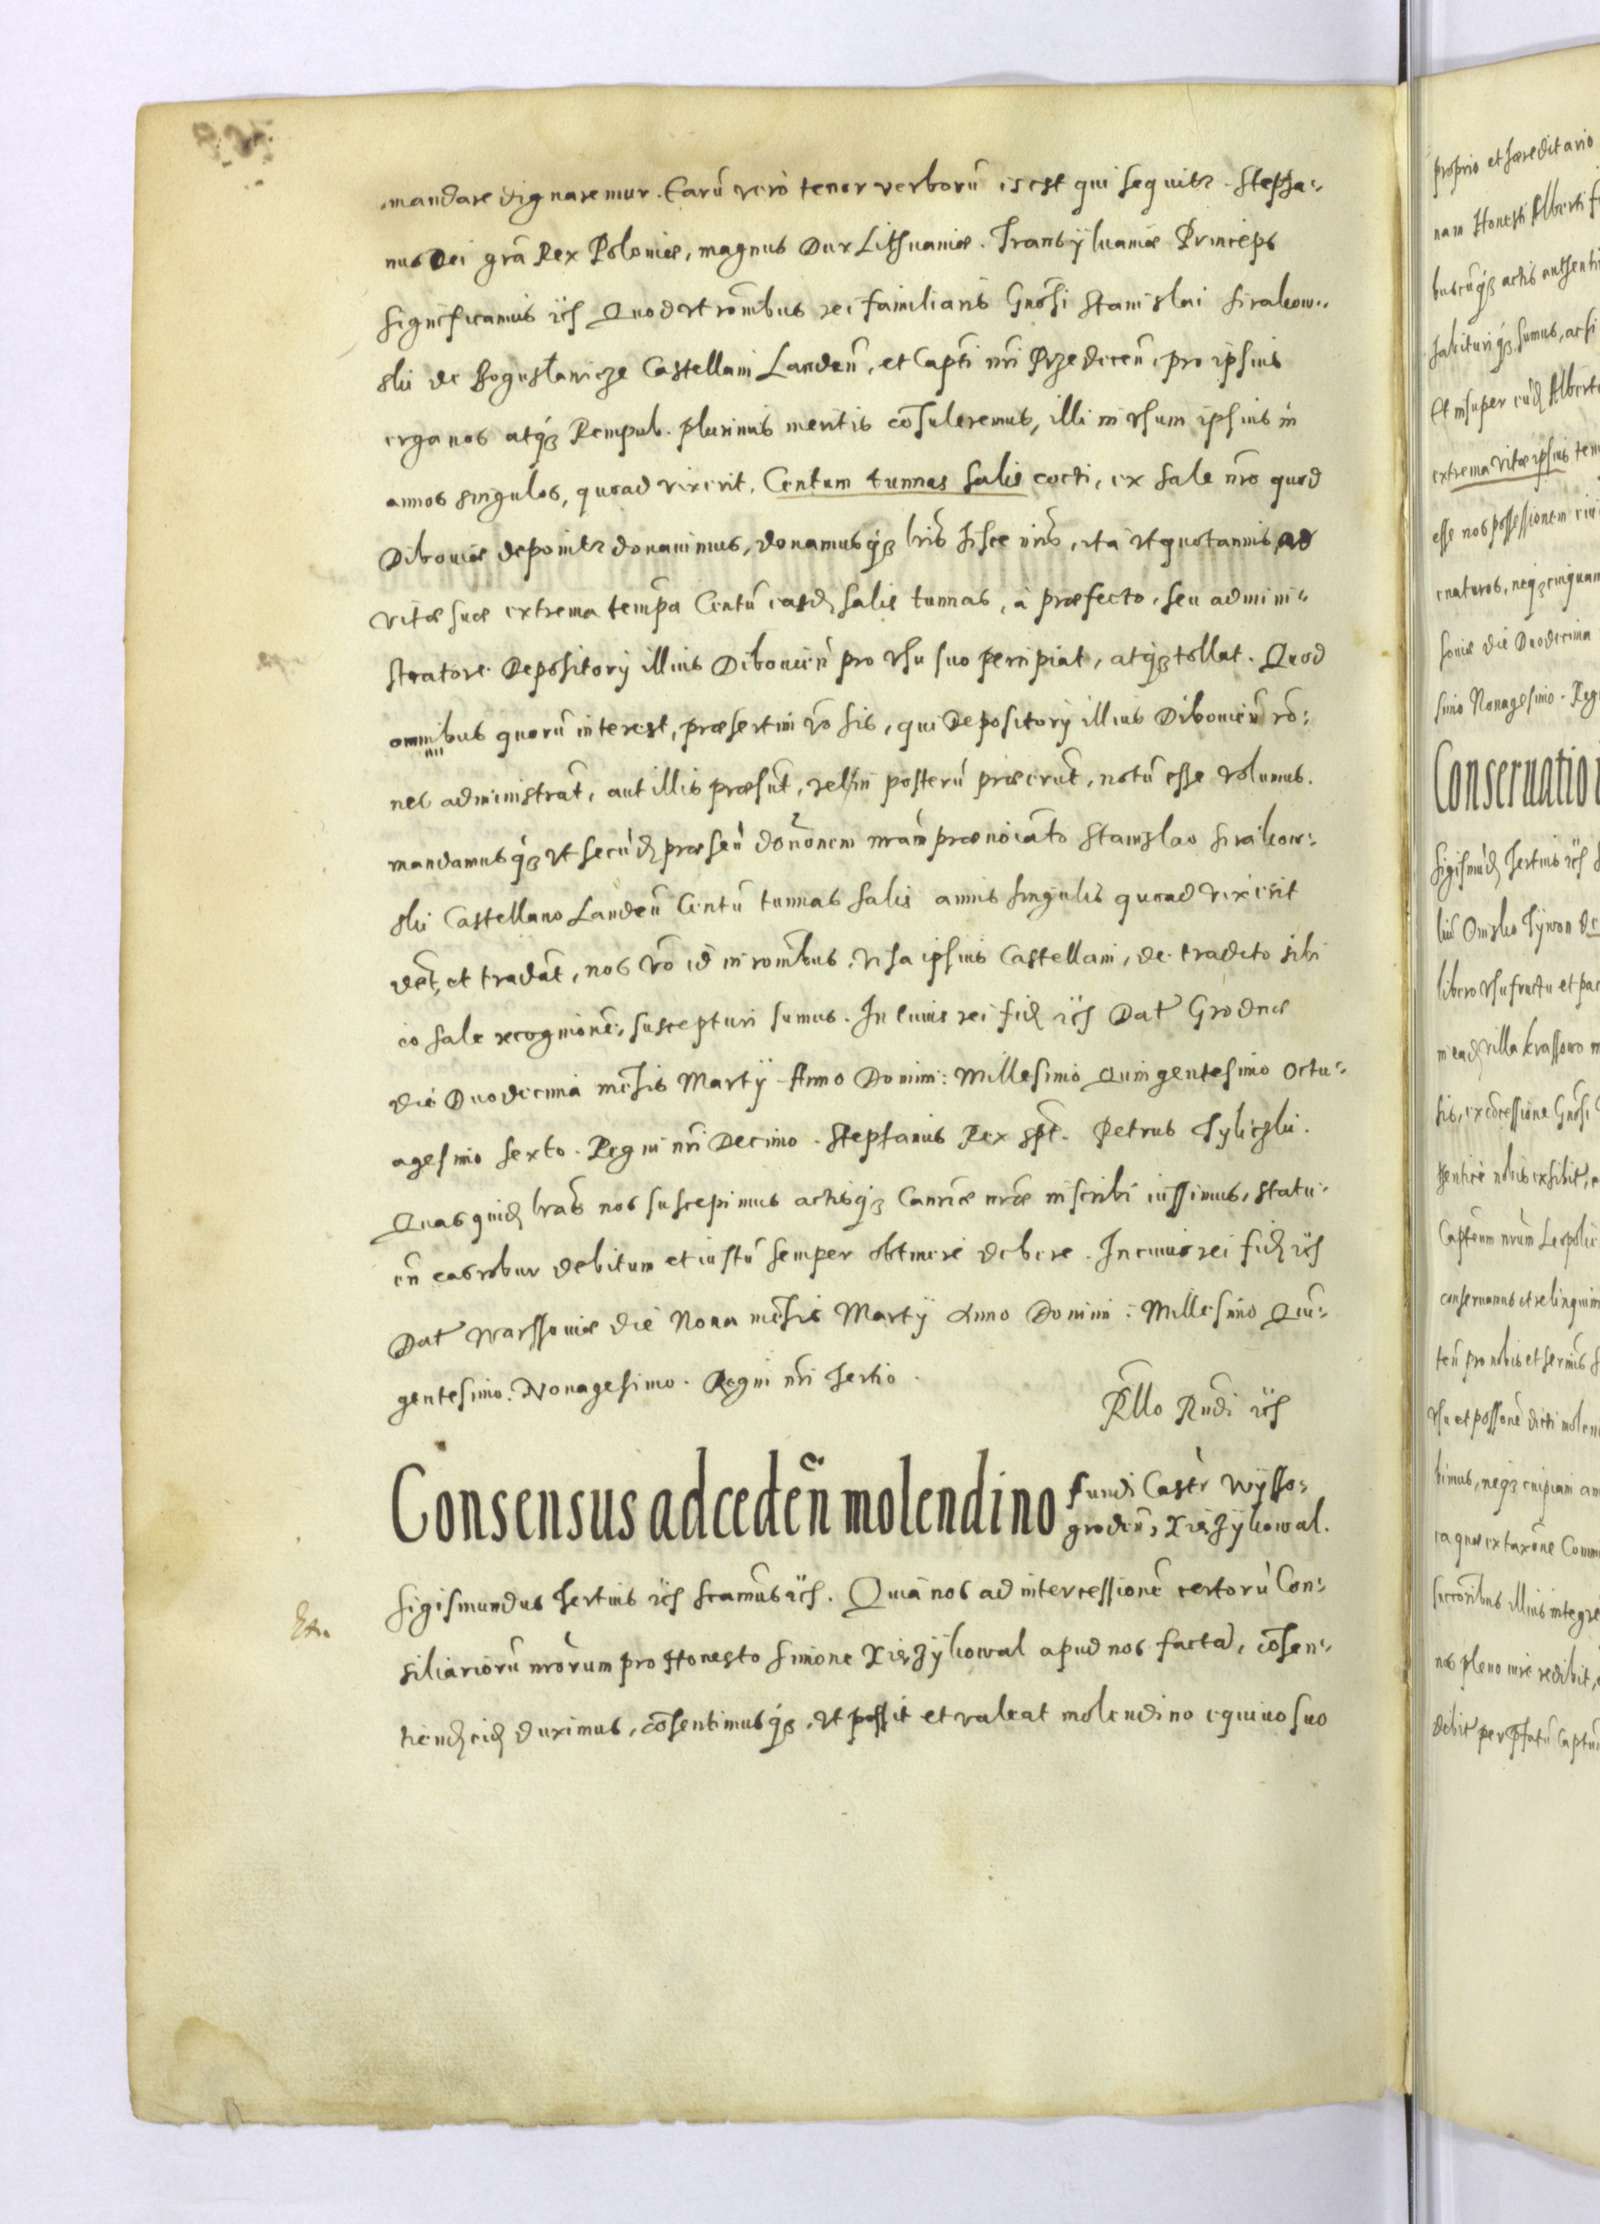 mandare dignaremur. Earũ verò tenor verborũ is est qui sequitr. Stepha-
nus Dei grã Rex Poloniæ, magnus Dux Lithuaniæ. Transÿluaniæ Princeps
Significamus ꝛc̃ Quod vt rõnibus rei familiaris Gnõsi Stanislai Sirakow-
ski de Boguslawicze Castellani Landeñ, et Capti nr̃i Przedeceñ, pro ipsius
erga nos atq̃ Rempub. plurimis meritis cõsuleremus, illi in vsum ipsius in
annos singulos, quoad vixerit. Centum tunnas salis cocti, ex sale nr̃o quod
Diboviæ deponitr donauimus, donamusq̃ lris hisce nr̃is, ita vt quotannis ad
vitæ suæ extrema tempa Centũ easd̃ salis tunnas, à præfecto, seu admini-
stratore Depositorÿ illius Dibouieñ pro vsu suo percipiat, atq̃ tollat. Quod
omnibus quorũ interest, præsertim vo his, qui Depositorÿ illius Diboueñ ro-
nes administrat̃, aut illis præsũt, vel in posterũ præerũt, notũ esse volumus.
mandamusq̃ vt secũd̃ præseñ donõnem nram prænoiato Stanislao Sirakow-
ski Castellano Landeñ Centũ tunnas salis annis singulis quoad vixerit
det, et tradãt, nos vo id in rõnibus, visa ipsius Castellani, de tradito sibi
eo sale recognione, suscepturi sumus. In cuius rei fid̃ ꝛc̃ Dat̃ Grodnæ
die Duodecima mẽsis Martÿ Anno Domini: Millesimo Quingentesimo Octu-
agesimo sexto. Regni nr̃i Decimo. Stephanus Rex spt̃. Petrus Tyliczki.
Quas quid̃ lras nos suscepimus actisq̃ Canriæ nræ inscribi iussimus, statu-
eñ eas robur debitum et iustũ semper obtinere debere. In cuius rei fid̃ ꝛc̃
Dat̃ Warssoviæ die Nona mẽsis Martÿ Anno Domini: Millesimo Quĩ-
gentesimo. Nonagesimo. Regni nr̃i Tertio.
Rllo Rndi ꝛc̃
Consensus ad cedeñ molendino fundi Castr̃ Wÿsso-
grodeñ,
Sigismundus Tertius ꝛc̃ Scamus ꝛc̃. Quia nos ad intercessionẽ certorũ Con-
siliariorũ nrorum pro Honesto Simone apud nos factã, cõsen-
tiend̃ eid̃ duximus, cõsentimusq̃, vt possit et valeat molendino equino suo
proprio et hæreditario
nam Honesti Alberti
buscũq̃ actis authenti
habituriq̃ sumus, ac si
Et insuper eid̃ Alberto
extrema vitæ ipsius ten
esse nos possessionem
enaturos, neq̃ cuiquam
soviæ die Duodecima
simo Nonagesimo. Reg
Conseruatio
Sigismũd̃ Tertius ꝛc̃
Tÿwon de
libero vsufructu et pac
in ead̃ villa Krassowo
sis, ex cõcessione Gnõsi
thenticè nobis exhibit,
Capteum nrum Leopolie
conseruamus et relinquim
teñ pro nobis et Sermis
vsu et possone dicti molen
bimus, neq̃ cuipiam
ea quæ ex taxõne Commi
Succoribus illius integre
nos pleno iure redibit,
debit per